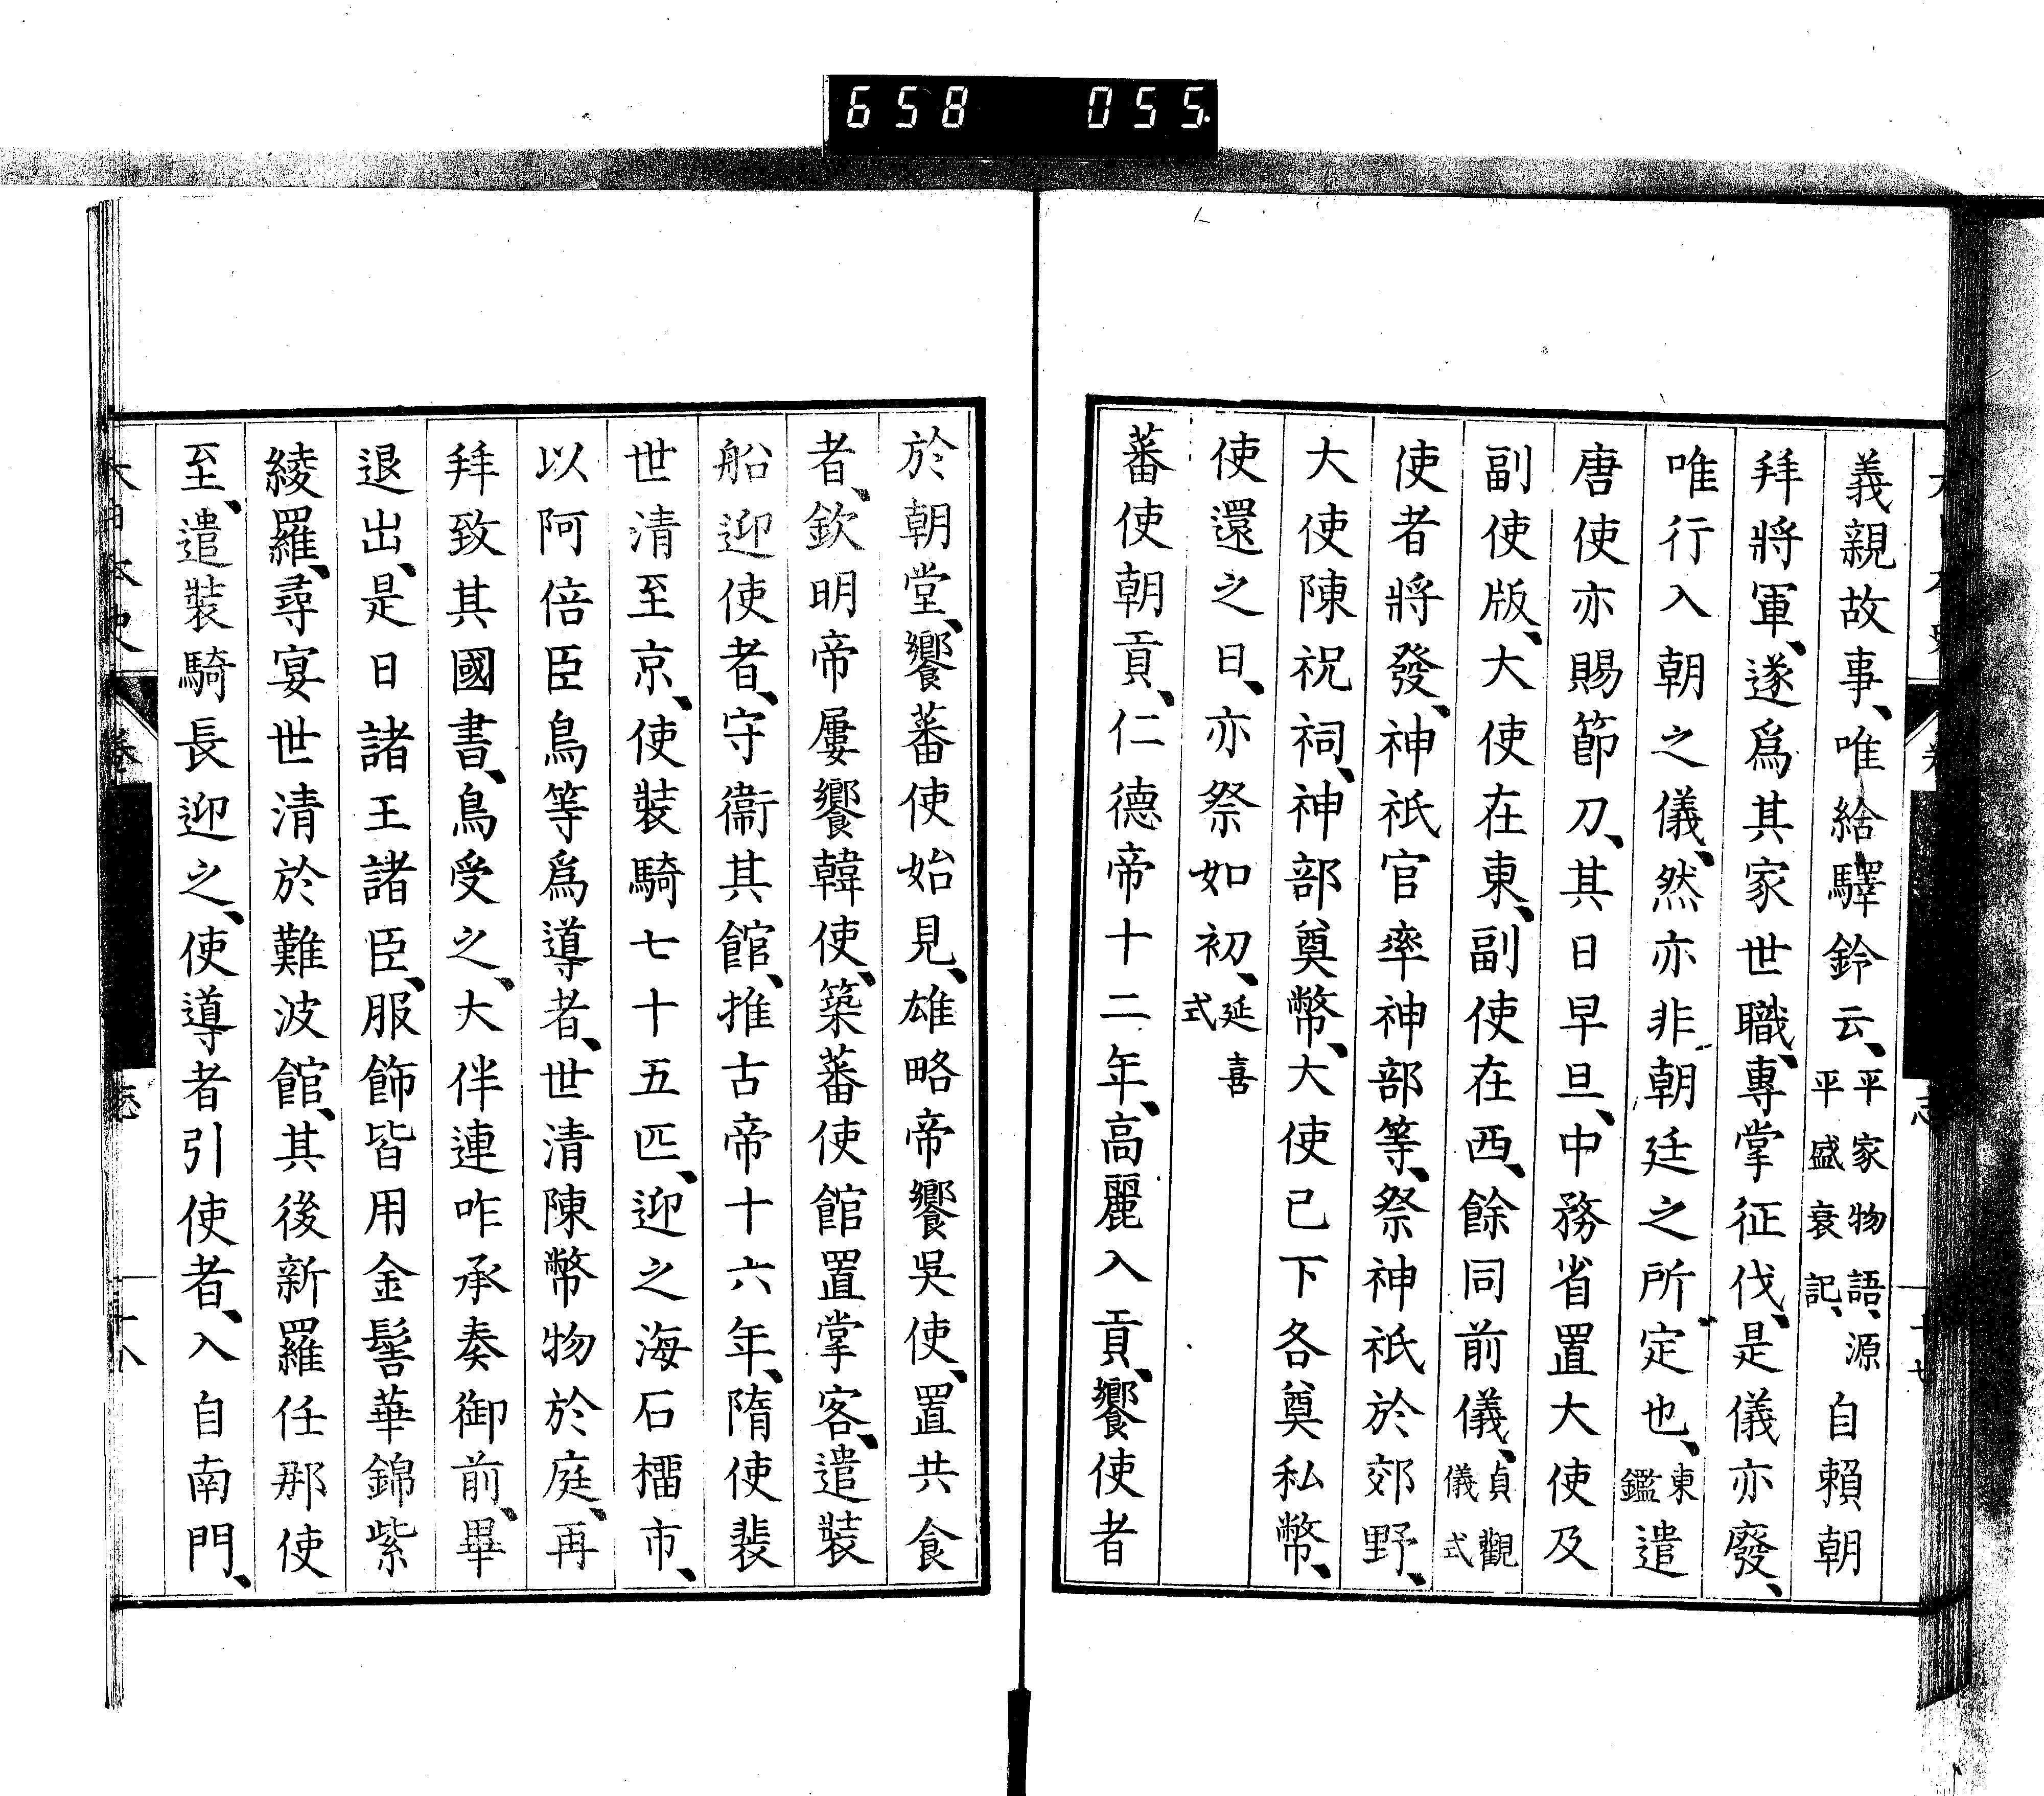 658 055
義親故事、唯給驛鈴云、平家物語、源平盛衰記、自賴朝
拜將軍、遂爲其家世職、專掌征伐、是儀亦廢、
唯行入朝之儀、然亦非朝廷之所定也、東鑑遣
唐使亦賜節刀、其日早旦、中務省置大使及
副使版、大使在東、副使在西、餘同前儀、貞觀儀式
使者將發、神祇官率神部等、祭神祇於郊野、
大使陳祝祠、神部奠幣、大使已下各奠私幣、
使還之日、亦祭如初、延喜式
蕃使朝貢、仁德帝十二年、高麗入貢、饗使者
於朝堂、饗蕃使始見、雄略帝饗吳使、置共食
者、欽明帝屢饗韓使、築蕃使館置掌客、遣裝
船迎使者、守衞其館、推古帝十六年、隋使裴
世清至京、使裝騎七十五匹、迎之海石榴市、
以阿倍臣鳥等爲導者、世清陳幣物於庭、再
拜致其國書、鳥受之、大伴連咋承奏御前、畢
退出、是日諸王諸臣、服飾皆用金髻華錦紫
綾羅、尋宴世清於難波館、其後新羅任那使
至、遣裝騎長迎之、使導者引使者、入自南門、
大日本史 卷 志 三十八